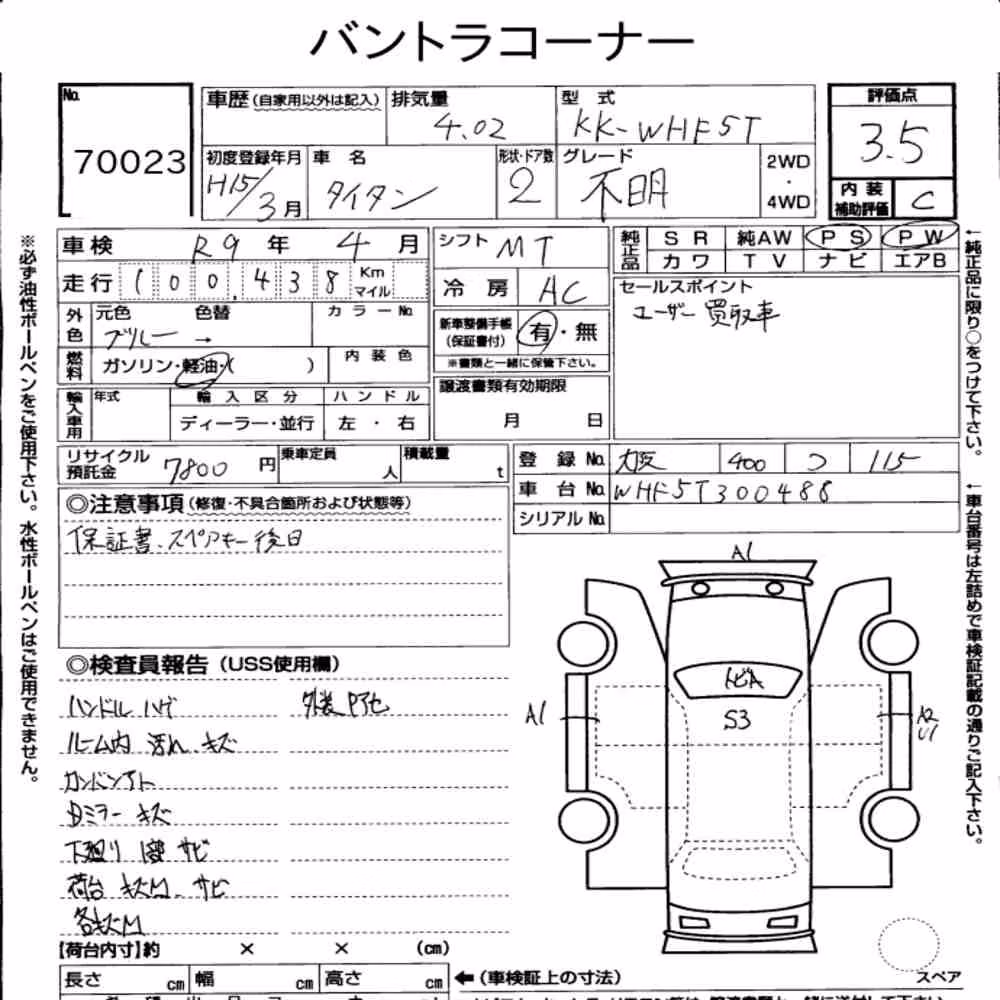 バントラコーナー
No. 70023
車歴(自家用以外は記入) 排気量 4.02 型式 KK-WHF5T 評価点 3.5
初度登録年月 H15/3月 車名 タイタン 形状・ドア数 2 グレード 不明 2WD・4WD 内装補助評価 C
車検 R9年 4月 シフト MT 純正品 SR 純AW PS PW
カワ TV ナビ エアB
走行 100,438 Km マイル 冷房 AC
セールスポイント
ユーザー買取車
外色 元色 色替 カラーNo.
ブルー →
新車整備手帳(保証書付) 有・無
※書類と一緒に保管下さい。
燃料 ガソリン・軽油・( ) 内装色
譲渡書類有効期限
月 日
輸入車用 年式 輸入区分 ハンドル
ディーラー・並行 左・右
リサイクル預託金 7800円 乗車定員 人 積載量 t
登録No. 大阪 400 つ 115
車台No. WHF5T300488
シリアルNo.
◎注意事項(修復・不具合箇所および状態等)
保証書、スペアキー後日
◎検査員報告(USS使用欄)
ハンドル ハゲ
外装
ルーム内 汚れ、キズ
ミラー キズ
下廻り サビ
荷台 サビ
【荷台内寸】約 × × (cm)
長さ cm 幅 cm 高さ cm ←(車検証上の寸法)
A1
トビA
S3
A1
A2
U1
スペア
※必ず油性ボールペンをご使用下さい。水性ボールペンはご使用できません。
←純正品に限り○をつけて下さい。
←車台番号は左詰めで車検証記載の通りご記入下さい。